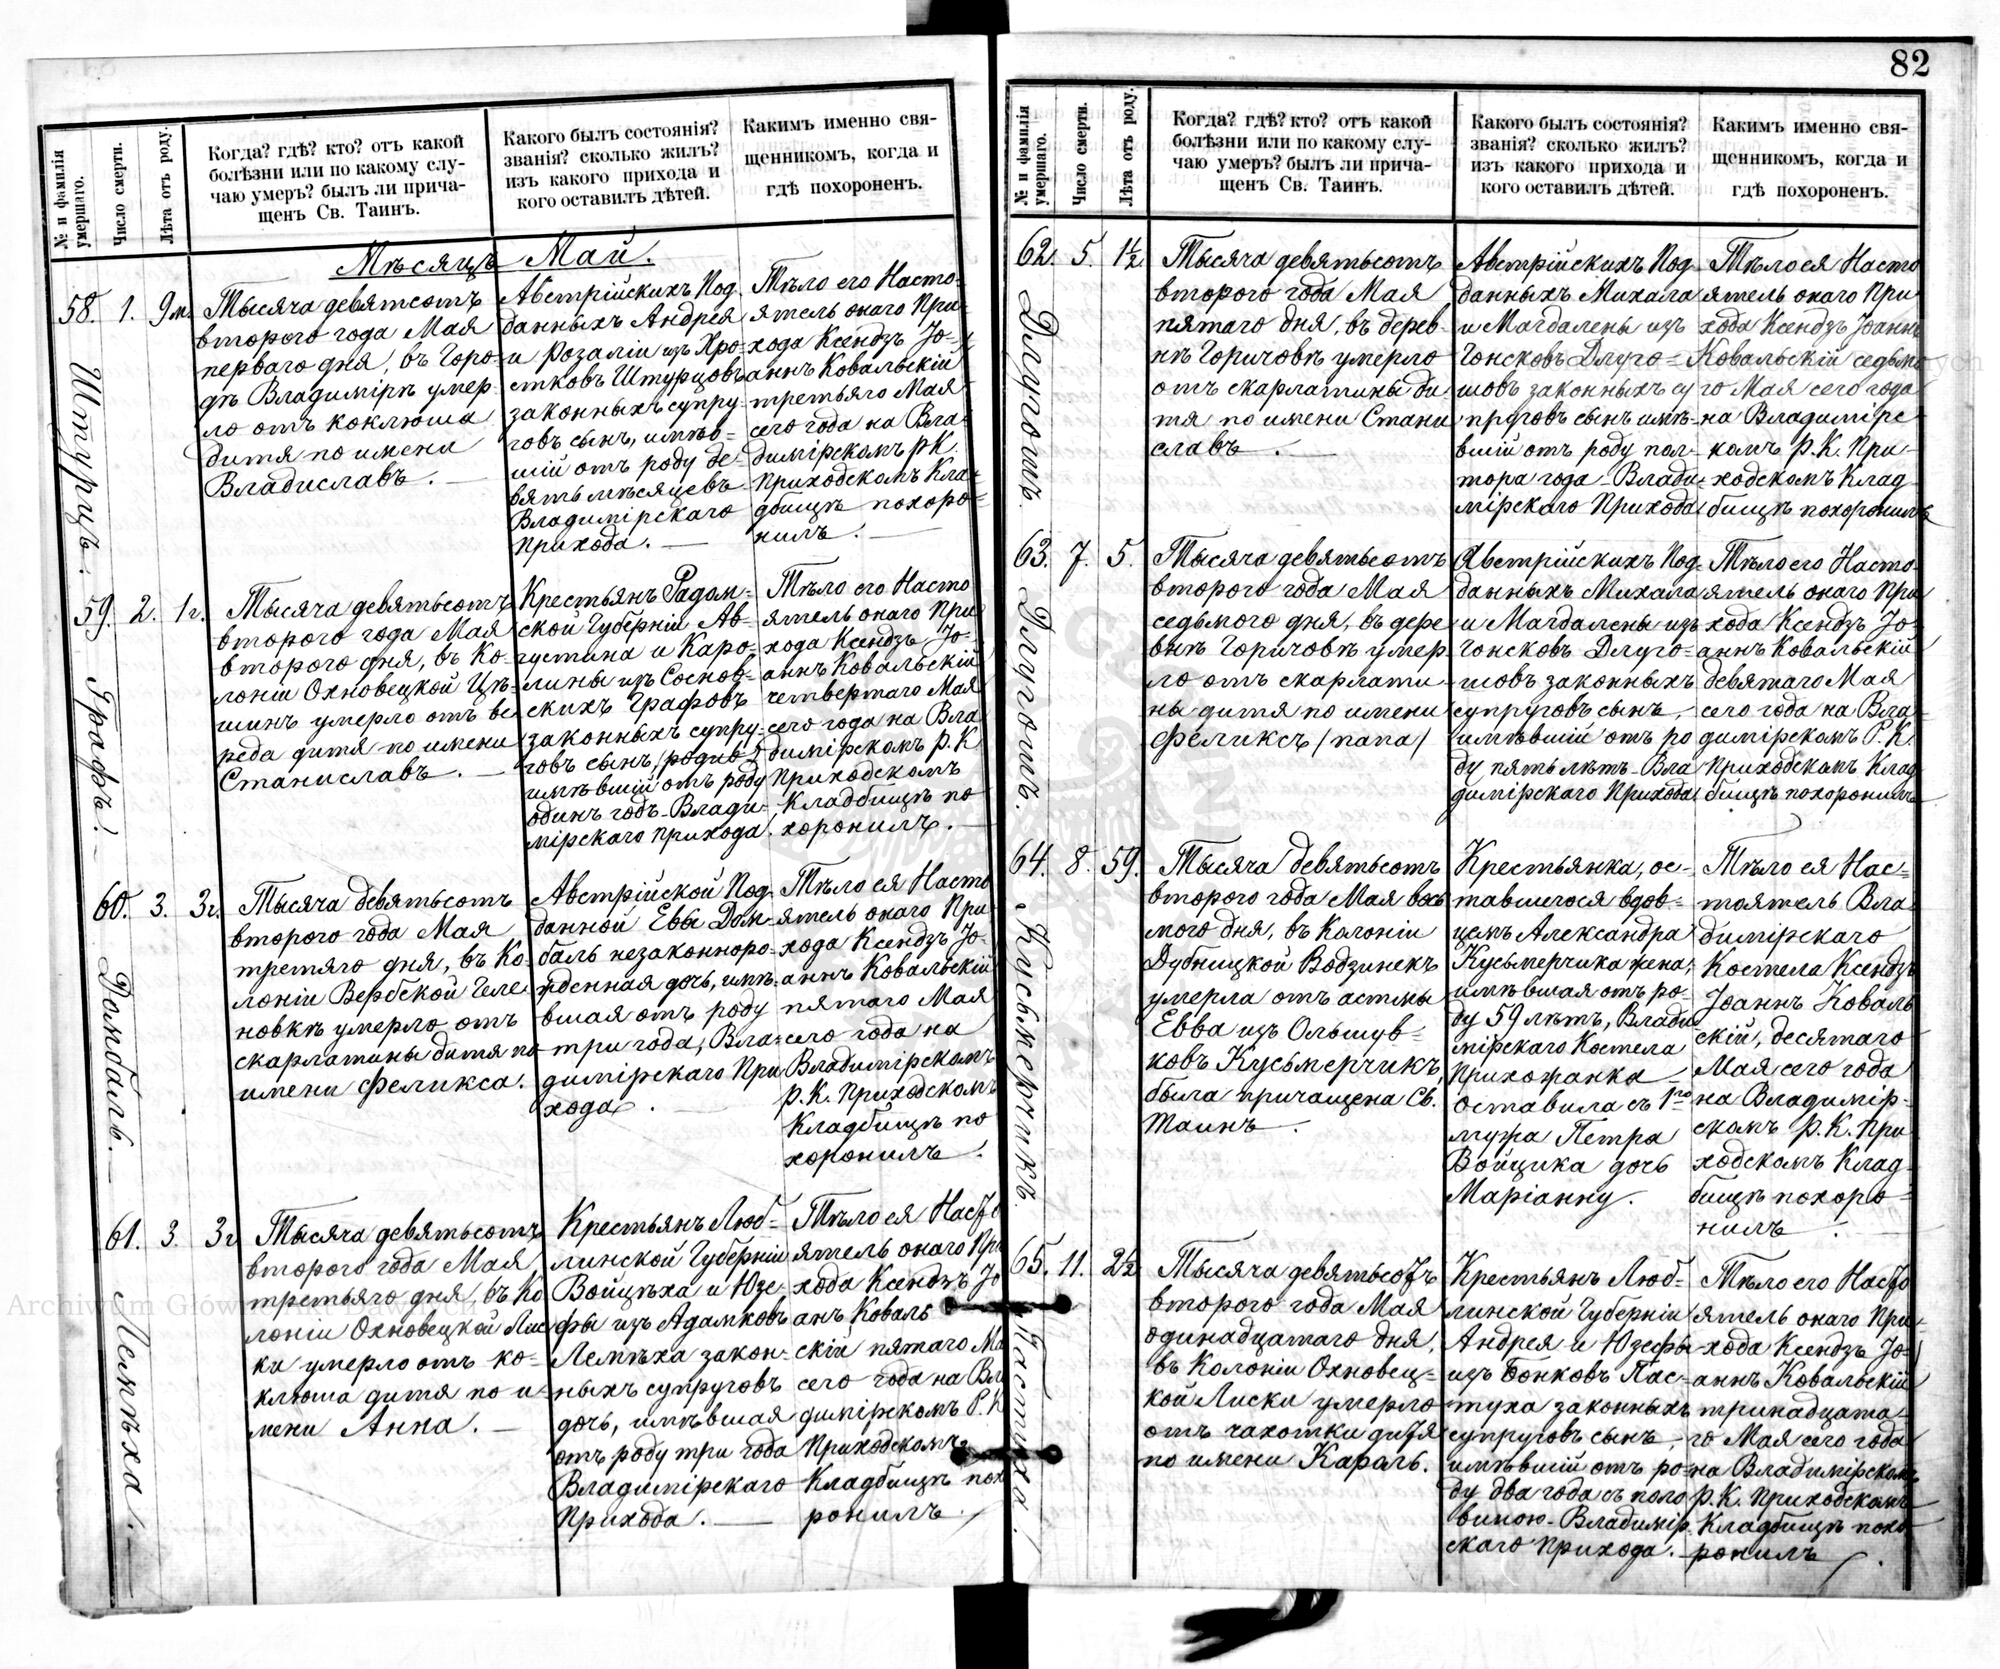 82
№ и фамилія умершаго.
Число смерти.
Лѣта отъ роду.
Когда? гдѣ? кто? отъ какой
болѣзни или по какому слу-
чаю умеръ? былъ ли прича-
щенъ Св. Таинъ.
Какого былъ состоянія?
званія? сколько жилъ?
изъ какого прихода и
кого оставилъ дѣтей.
Какимъ именно свя-
щенникомъ, когда и
гдѣ похороненъ.
Мѣсяцъ Май.
58. 1. 9м.
Штурцъ.
Тысяча девятьсотъ
второго года Мая
перваго дня, въ Горо-
дѣ Владимірѣ умер-
ло отъ коклюша
дитя по имени
Владиславъ. —
Австрійскихъ Под-
данныхъ Андрея
и Розаліи изъ Хро-
стковъ Штурцовъ
законныхъ супру-
говъ сынъ, имѣв-
шій отъ роду де-
вять мѣсяцевъ
Владимірскаго
прихода. —
Тѣло его Насто-
ятель онаго При-
хода Ксендзъ Іо-
аннъ Ковальскій
третьяго Мая
сего года на Вла-
димірскомъ р.К.
Приходскомъ Кла-
дбищѣ похоро-
нилъ. —
59. 2. 1г.
Графъ. —
Тысяча девятьсотъ
второго года Мая
второго дня, въ Ко-
лоніи Охновецкой Цѣ-
шинъ умерло отъ ве-
реда дитя по имени
Станиславъ. —
Крестьянъ Радом-
ской Губерніи Ав-
густина и Каро-
лины изъ Соснов-
скихъ Графовъ
законныхъ супру-
говъ сынъ,
имѣвшій отъ роду
одинъ годъ – Влади-
мірскаго прихода.
Тѣло его Насто
ятель онаго При
хода Ксендзъ Іо-
аннъ Ковальскій
четвертаго Мая
сего года на Вла
димірскомъ р.К
Приходскомъ
Кладбищѣ по
хоронилъ. —
60. 3. 3г.
Домбаль. —
Тысяча девятьсотъ
второго года Мая
третяго дня, въ Ко-
лоніи Вербской Геле-
новкѣ умерло отъ
скарлатины дитя по
имени Феликса.
Австрійской Под-
данной Евы Дом-
баль незаконноро-
жденная дочь, имѣ-
вшая отъ роду
три года, Вла-
димірскаго При
хода. —
Тѣло ея Насто
ятель онаго При-
хода Ксендзъ Іо-
аннъ Ковальскій
пятаго Мая
сего года на
Владимірскомъ
р.К. Приходскомъ
Кладбищѣ по
хоронилъ.
61. 3. 3г
Лемѣха. —
Тысяча девятьсотъ
второго года Мая,
третьяго дня, въ Ко
лоніи Охновецкой Лис
ки умерло отъ ко-
клюша дитя по и-
мени Анна. —
Крестьянъ Люб-
линской Губерніи
Войцѣха и Юзе-
фы изъ Адамковъ
Лемѣха закон-
ныхъ супруговъ
дочь, имѣвшая
отъ роду три года
Владимірскаго
Прихода. —
Тѣло ея Насто
ятель онаго При
хода Ксендзъ Іо
анъ Коваль
скій пятаго Ма
сего года на Вл
димірскомъ Р.К
Приходскомъ
Кладбищѣ пох
ронилъ.
№ и фамилія умершаго.
Число смерти.
Лѣта отъ роду.
Когда? гдѣ? кто? отъ какой
болѣзни или по какому слу-
чаю умеръ? былъ ли прича-
щенъ Св. Таинъ.
Какого былъ состоянія?
званія? сколько жилъ?
изъ какого прихода и
кого оставилъ дѣтей.
Какимъ именно свя-
щенникомъ, когда и
гдѣ похороненъ.
62. 5. 1½
Длугошъ.
Тысяча девятьсотъ
второго года Мая
пятаго дня, въ дерев-
нѣ Горичовѣ умерло
отъ скарлатины ди-
тя по имени Стани
славъ. —
Австрійскихъ Под-
данныхъ Михала
и Магдалены изъ
Гонсковъ Длуго-
шовъ законныхъ су
пруговъ сынъ имѣ-
вшій отъ роду пол-
тора года – Влади-
мірскаго Прихода
Тѣло ея Насто
ятель онаго При
хода Ксендзъ Іоаннъ
Ковальскій седьмо
го Мая сего года
на Владимірс
комъ Р.К. При-
ходскомъ Клад
бищѣ похоронилъ
63. 7. 5.
Длугошъ.
Тысяча девятьсотъ
второго года Мая
седьмого дня, въ дере
внѣ Горичовѣ умер
ло отъ скарлати
ны дитя по имени
Феликсъ /папа/
Австрійскихъ Под-
данныхъ Михала
и Магдалены изъ
Гонсковъ Длуго-
шовъ законныхъ
супруговъ сынъ,
имѣвшій отъ ро
ду пять лѣтъ – Вла
димірскаго Прихода
Тѣло его Насто-
ятель онаго При
хода Ксендзъ Іо-
аннъ Ковальскій
девятаго Мая
сего года на Вла-
димірскомъ Р.К.
Приходскомъ Клад
бищѣ похоронилъ
64. 8. 59.
Кусьмерчикъ.
Тысяча девятьсотъ
второго года Мая вось
мого дня, въ Колоніи
Дубницкой Водзинекъ
умерла отъ астмы
Евва изъ Ольшув-
ковъ Кусьмерчикъ,
была причащена Св.
Таинъ.
Крестьянка, ос-
тавшагося вдов-
цемъ Александра
Кусьмерчика жена,
имѣвшая отъ ро-
ду 59 лѣтъ, Влади
мірскаго Костела
Прихожанка –
оставила съ 1го
мужа Петра
Войцика дочь
Маріанну.
Тѣло ея Нас-
тоятель Вла-
димірскаго
Костела Ксендзъ
Іоаннъ Коваль
скій, десятаго
Мая сего года
на Владимір-
скомъ р.К. При
ходскомъ Клад-
бищѣ похоро-
нилъ.
65. 11. 2½
Пастуха.
Тысяча девятьсотъ
второго года Мая
одинадцатаго дня,
въ Колоніи Охновец-
кой Лиски умерло
отъ чахотки дитя
по имени Кароль.
Крестьянъ Люб-
линской Губерніи
Андрея и Юзефы
изъ Бонковъ Пас-
туха законныхъ
супруговъ сынъ,
имѣвшій отъ ро-
ду два года съ поло
виною – Владимір-
скаго прихода. —
Тѣло его Насто
ятель онаго При-
хода Ксендзъ Іо-
аннъ Ковальскій
тринадцата-
го Мая сего года
на Владимірскомъ
р.К. Приходскомъ
Кладбищѣ похо
ронилъ.